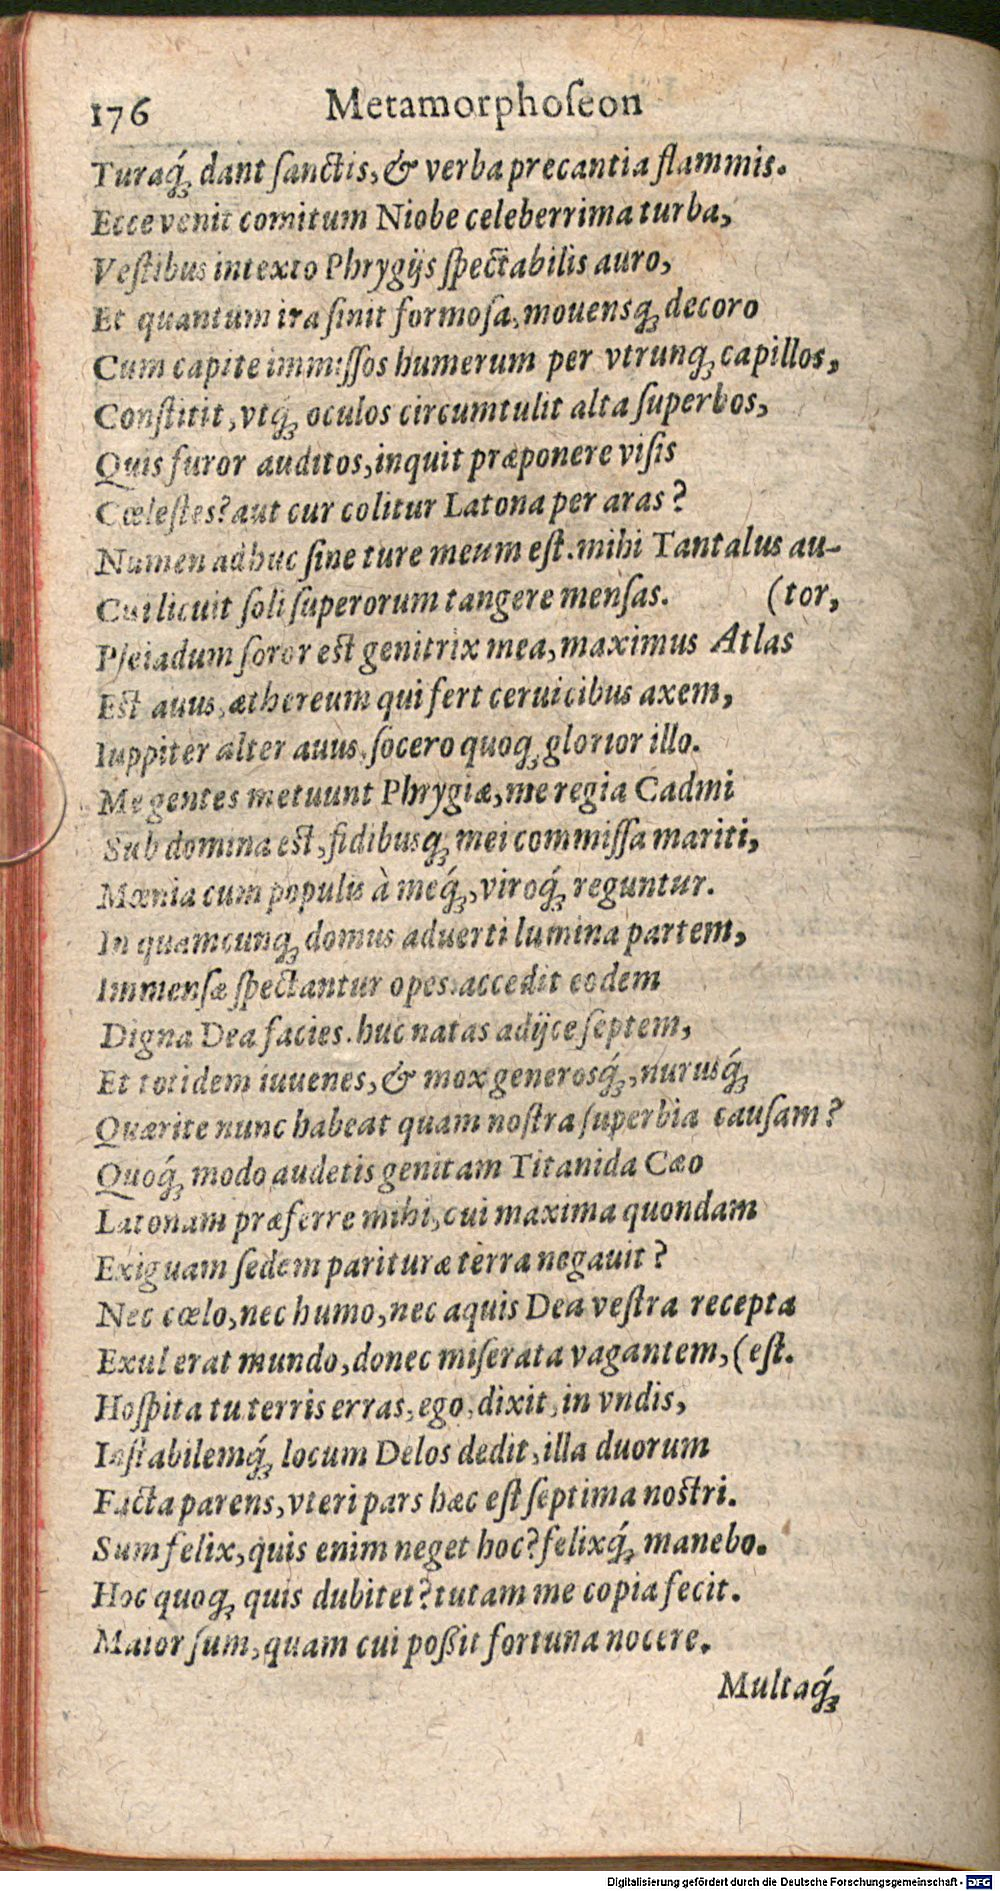 176 Metamorphoſeon
Turaq́ꝫ dant ſanctis, & verba precantia flammis.
Ecce venit comitum Niobe celeberrima turba,
Veſtibus intexto Phrygijs ſpectabilis auro,
Et quantum ira ſinit formoſa, mouensqꝫ decoro
Cum capite immiſſos humerum per vtrunqꝫ capillos,
Conſtitit, vtq́ꝫ oculos circumtulit alta ſuperbos,
Quis furor auditos, inquit præponere viſis
Cœleſtes? aut cur colitur Latona per aras?
Numen adhuc ſine ture meum eſt. mihi Tantalus au-
Cui licuit ſoli ſuperorum tangere menſas. (tor,
Pleiadum ſoror eſt genitrix mea, maximus Atlas
Eſt auus, æthereum qui fert ceruicibus axem,
Iuppiter alter auus, ſocero quoqꝫ glorior illo.
Me gentes metuunt Phrygiæ, me regia Cadmi
Sub domina eſt, fidibusqꝫ mei commiſſa mariti,
Mœnia cum populis à meq́ꝫ, viroq́ꝫ reguntur.
In quamcunqꝫ domus aduerti lumina partem,
Immenſæ ſpectantur opes. accedit eodem
Digna Dea facies. huc natas adijce ſeptem,
Et totidem iuuenes, & mox generosq́ꝫ, nurusq́ꝫ
Quærite nunc habeat quam noſtra ſuperbia cauſam?
Quoq́ꝫ modo audetis genitam Titanida Cæo
Latonam præferre mihi, cui maxima quondam
Exiguam ſedem parituræ terra negauit?
Nec cœlo, nec humo, nec aquis Dea veſtra recepta
Exul erat mundo, donec miſerata vagantem, (eſt.
Hoſpita tu terris erras, ego, dixit, in vndis,
Inſtabilemq́ꝫ locum Delos dedit, illa duorum
Facta parens, vteri pars hæc eſt ſeptima noſtri.
Sum felix, quis enim neget hoc? felixq́ꝫ manebo.
Hoc quoqꝫ quis dubitet? tutam me copia fecit.
Maior ſum, quam cui poßit fortuna nocere.
Multaq́ꝫ
Digitalisierung gefördert durch die Deutsche Forschungsgemeinschaft - DFG